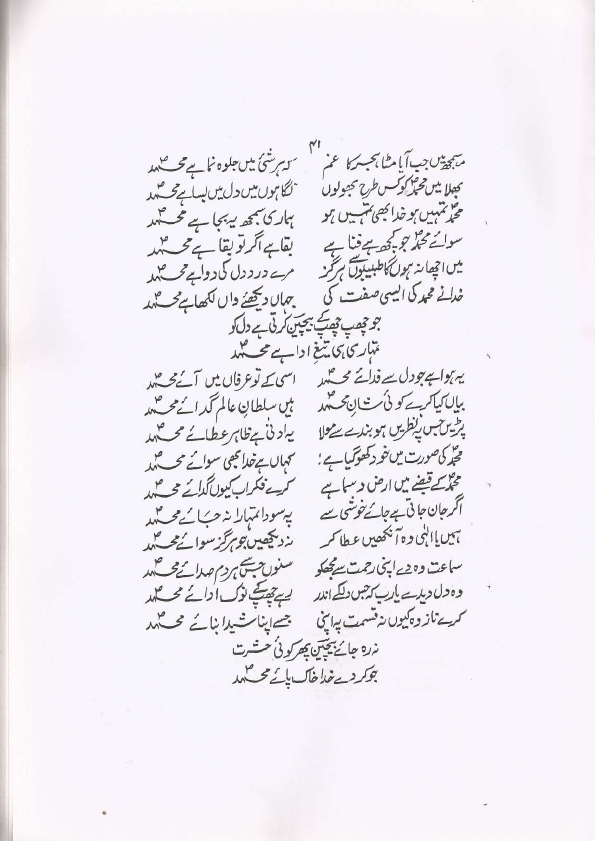 ۴۱
سمجھ میں جب آیا مٹا ہجر کا غم کہ ہر شئی میں جلوہ نما ہے محمدؐ
بھلا میں محمدؐ کو کس طرح بھولوں نگاہوں میں دل میں بسا ہے محمدؐ
محمدؐ تمہیں ہو خدا بھی تمہیں ہو ہماری سمجھ یہ بجا ہے محمدؐ
سوائے محمدؐ جو کچھ ہے فنا ہے بقا ہے اگر تو بقا ہے محمدؐ
میں اچھا نہ ہوں گا طبیبوں سے ہرگز مرے درد دل کی دوا ہے محمدؐ
خدا نے محمدؐ کی ایسی صفت کی جہاں دیکھئے واں لکھا ہے محمدؐ
جو چھپ چھپ کے بیچین کرتی ہے دل کو
تمہاری ہی تیغِ ادا ہے محمدؐ
یہ ہوا ہے جو دل سے فدائے محمدؐ اسی کے تو عرفاں میں آئے محمدؐ
بیاں کیا کرے کوئی شانِ محمدؐ ہیں سلطانِ عالم گدائے محمدؐ
پڑیں جس پہ نظریں ہو بندے سے مولا یہ ادنیٰ ہے ظاہر عطائے محمدؐ
محمدؐ کی صورت میں خود کھو گیا ہے؛ کہاں ہے خدا بھی سوائے محمدؐ
محمدؐ کے قبضے میں ارض و سما ہے کرے فکر اب کیوں گدائے محمدؐ
اگر جان جاتی ہے جائے خوشی سے پہ سودا تمہارا نہ جائے محمدؐ
ہمیں یا الٰہی وہ آنکھیں عطا کر نہ دیکھیں جو ہرگز سوائے محمدؐ
سماعت وہ دے اپنی رحمت سے مجھکو سنوں جس سے ہر دم صدائے محمدؐ
وہ دل دیدے یارب کہ جس دل کے اندر رہے چھپکے نوک ادائے محمدؐ
کرے ناز وہ کیوں نہ قسمت پہ اپنی جسے اپنا شیدا بنائے محمدؐ
نہ رہ جائے بیچین پھر کوئی حسرت
جو کر دے خدا خاک پائے محمدؐ